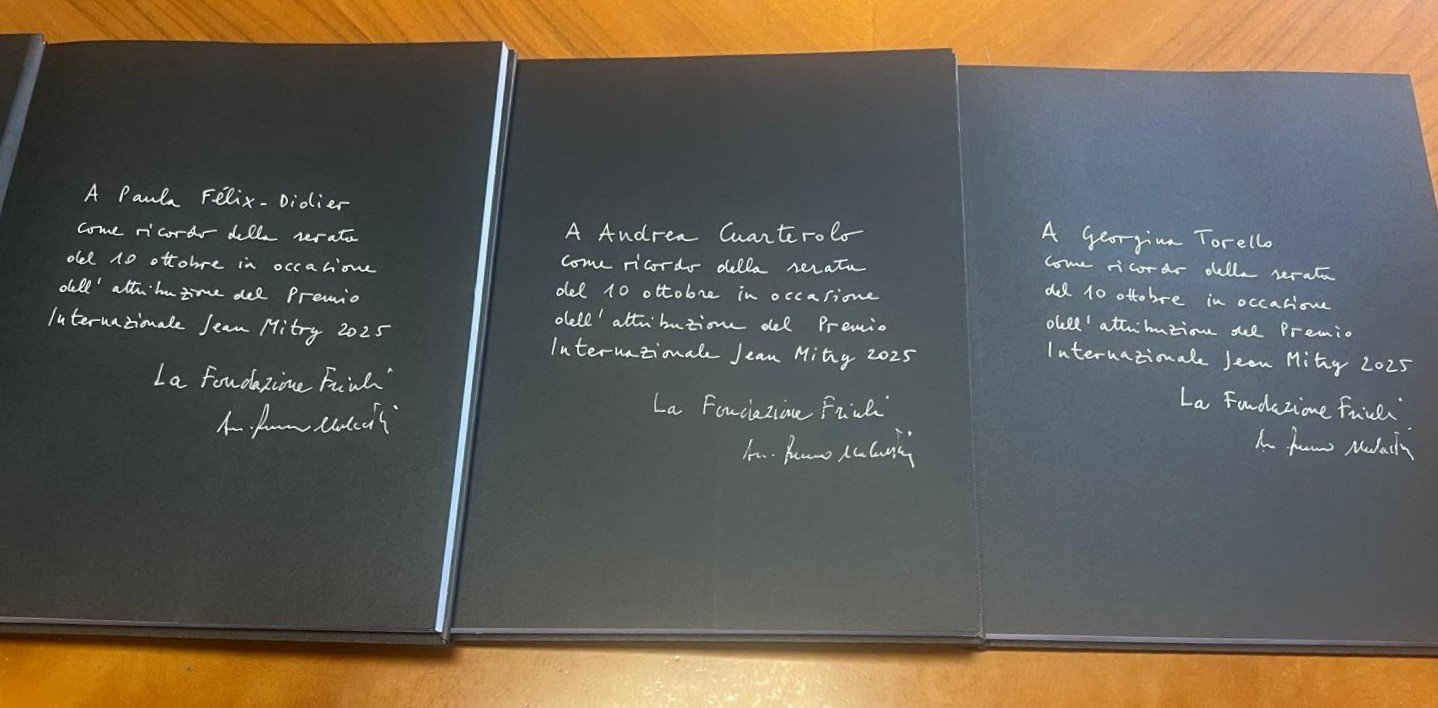 A Paula Félix-Didier
come ricordo della serata
del 10 ottobre in occasione
dell'attribuzione del Premio
Internazionale Jean Mitry 2025
La Fondazione Friuli
A Andrea Cuarterolo
come ricordo della serata
del 10 ottobre in occasione
dell'attribuzione del Premio
Internazionale Jean Mitry 2025
La Fondazione Friuli
A Georgina Torello
come ricordo della serata
del 10 ottobre in occasione
dell'attribuzione del Premio
Internazionale Jean Mitry 2025
La Fondazione Friuli